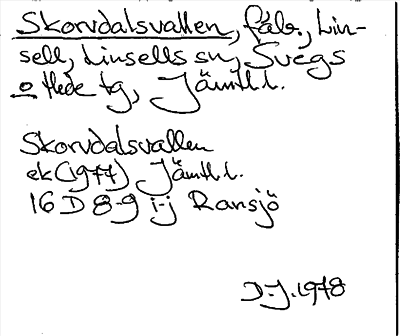 Skorvdalsvallen, fäb., Lin-
sell, Linsells sn, Svegs
o Hede tg, Jämtl.l.
Skorvdalsvallen
ek (1977) Jämtl.l.
16 D 8-9 i-j Ransjö
D-J. 1978